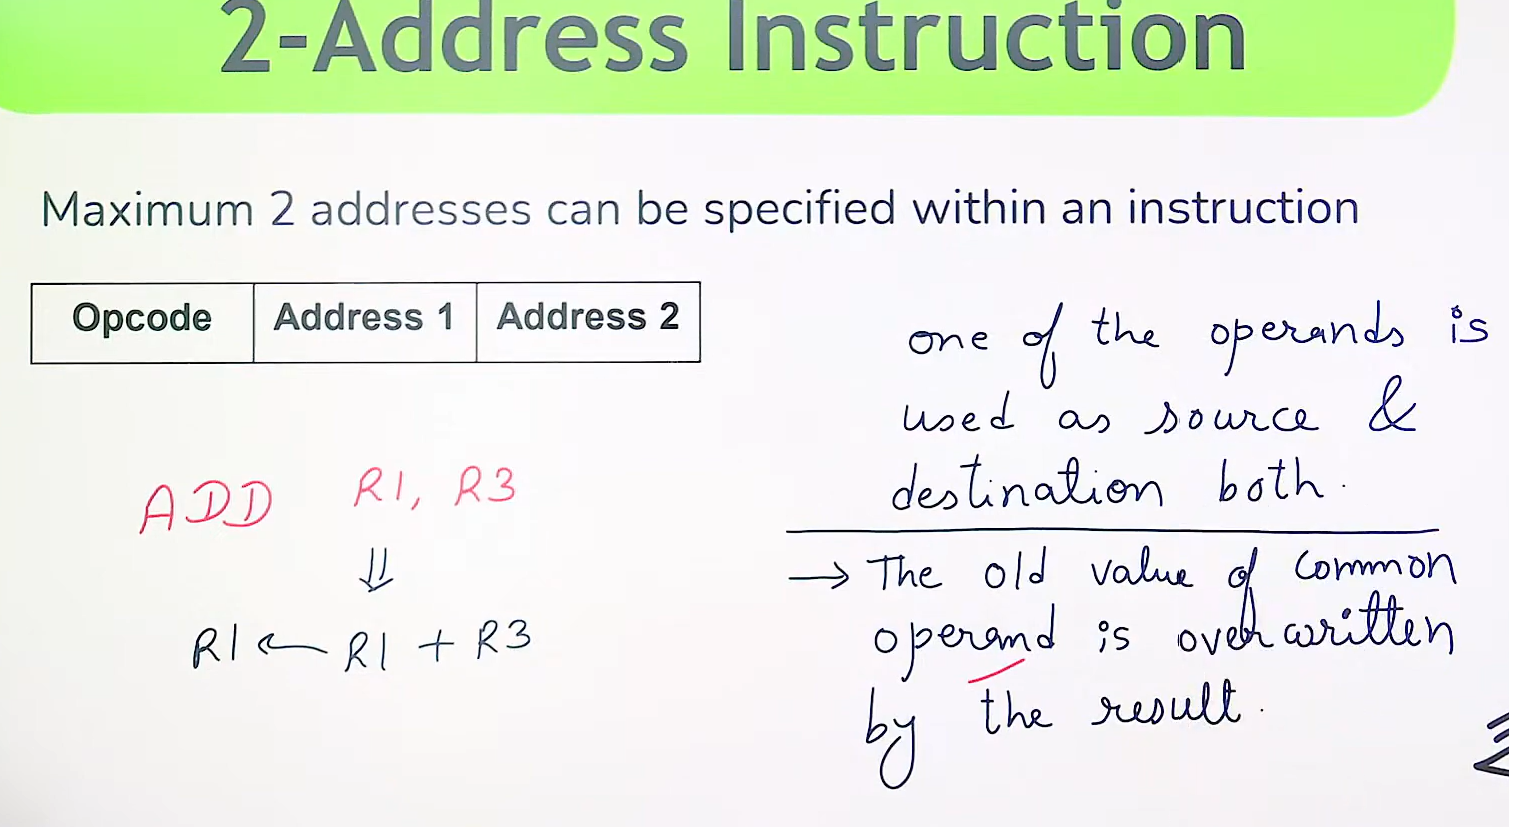 2-Address Instruction
Maximum 2 addresses can be specified within an instruction
Opcode Address 1 Address 2
ADD R1, R3
⇓
R1 ← R1 + R3
one of the operands is
used as source &
destination both.
→ The old value of common
operand is overwritten
by the result.